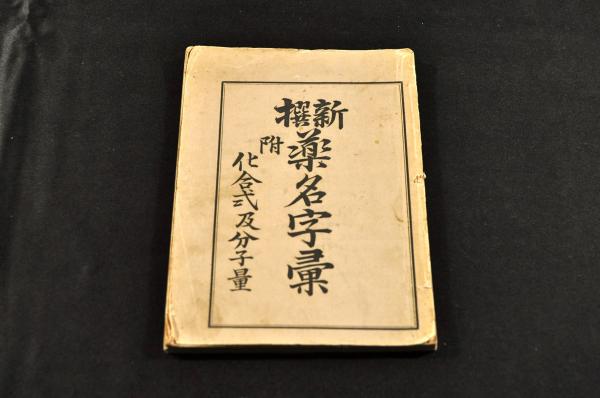 新撰
薬名字彙
附
化合式及分子量